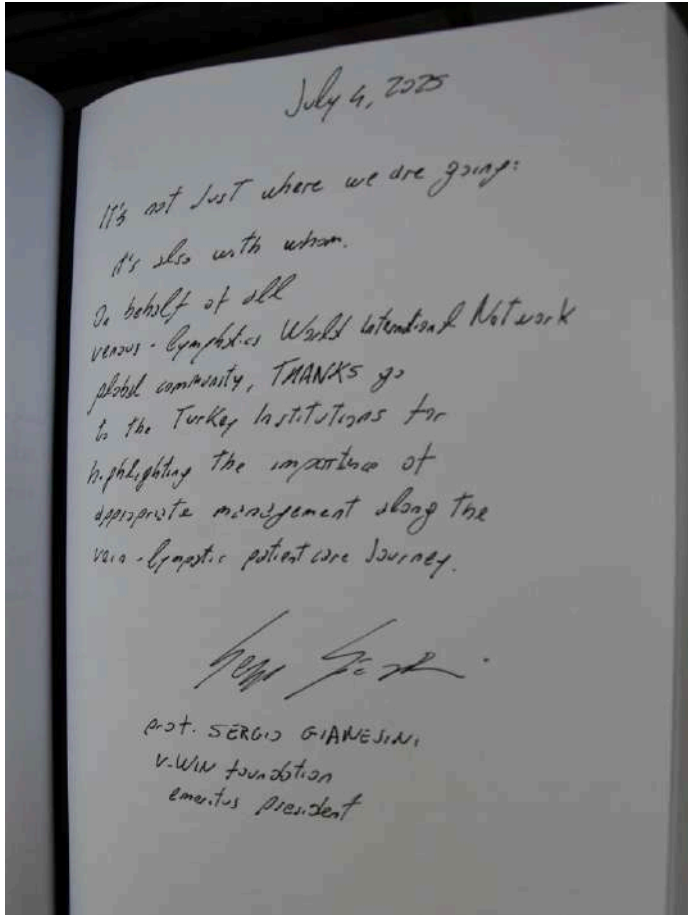 July 4, 2025
It's not Just where we are going:
it's also with whom.
On behalf of all
venous-lymphatics World International Network
global community, THANKS go
to the Turkey Institutions for
highlighting the importance of
appropriate management along the
vein-lympatic patient care Journey.
prof. SERGIO GIANESINI
V-WIN foundation
emeritus president